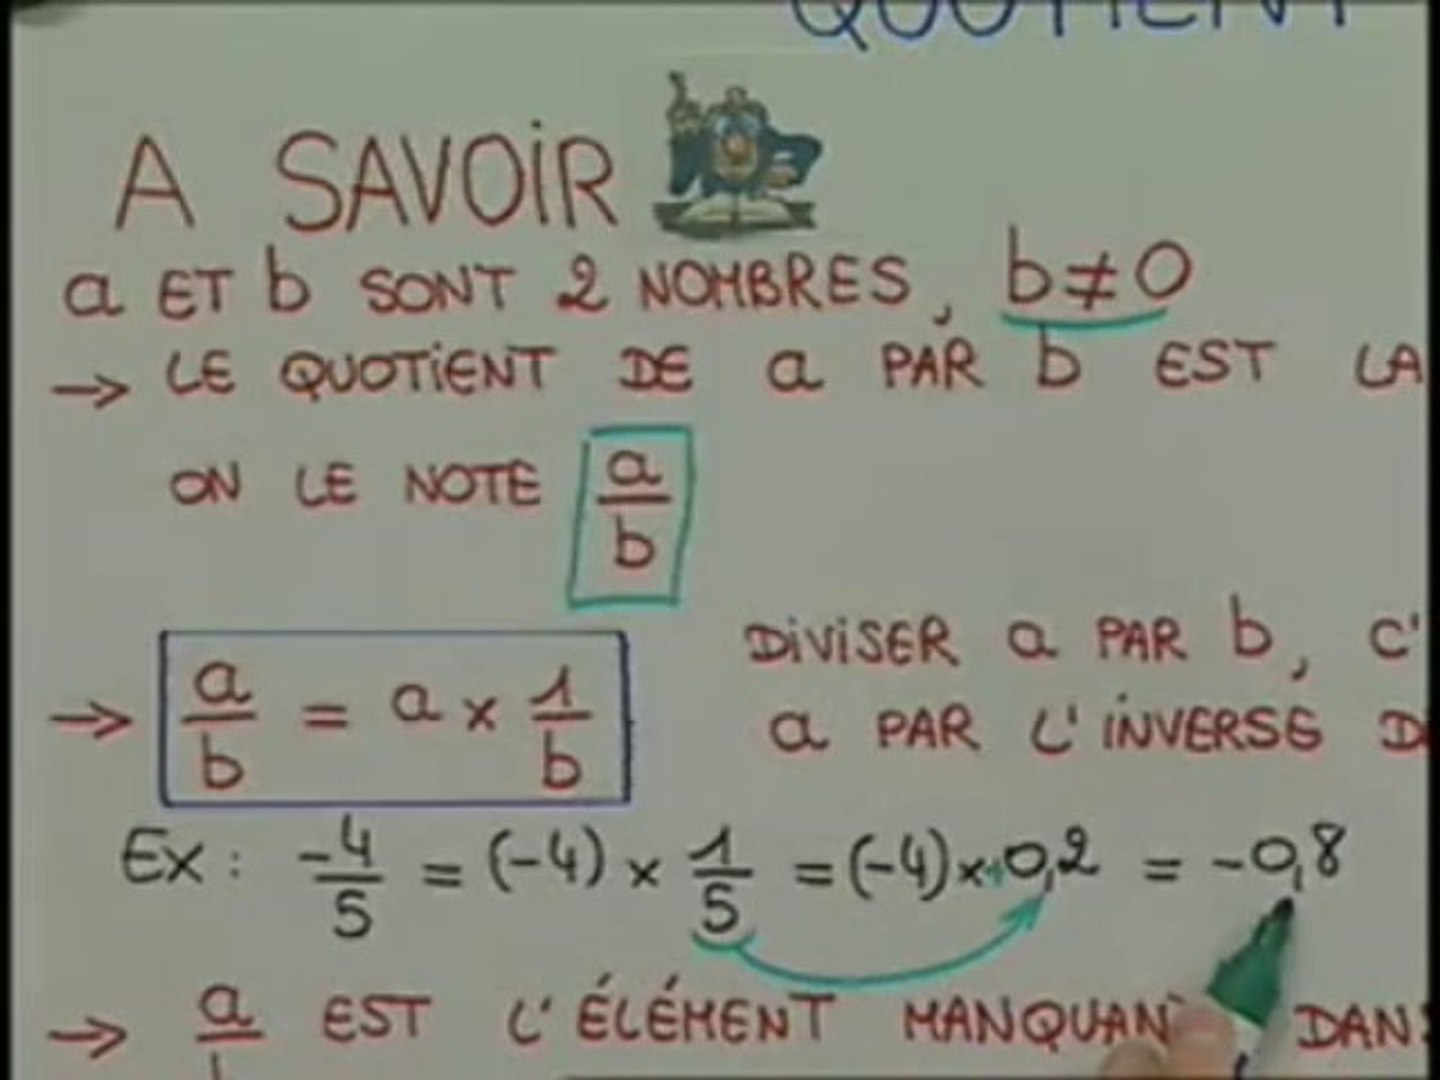 QUOTIENT
A SAVOIR
a ET b SONT 2 NOMBRES, b≠0
→ LE QUOTIENT DE a PAR b EST LA
ON LE NOTE a/b
→ a/b = a × 1/b
DIVISER a PAR b, C'
a PAR L'INVERSE D
Ex: -4/5 = (-4) × 1/5 = (-4) × +0,2 = -0,8
→ a/b EST L'ÉLÉMENT MANQUANT DANS